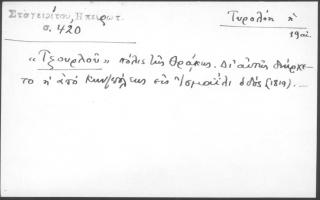 Σταγειρίτου, Ηπειρωτ.
σ. 420
Τυρολόη ἡ
19αι.
« Τζουρλοῦ » πόλις τῆς Θράκης. Δι' αὐτῆς διήρχε-
το ἡ ἀπό Κων/πόλεως εἰς Ἰσμαήλι ὁδός (1819). —